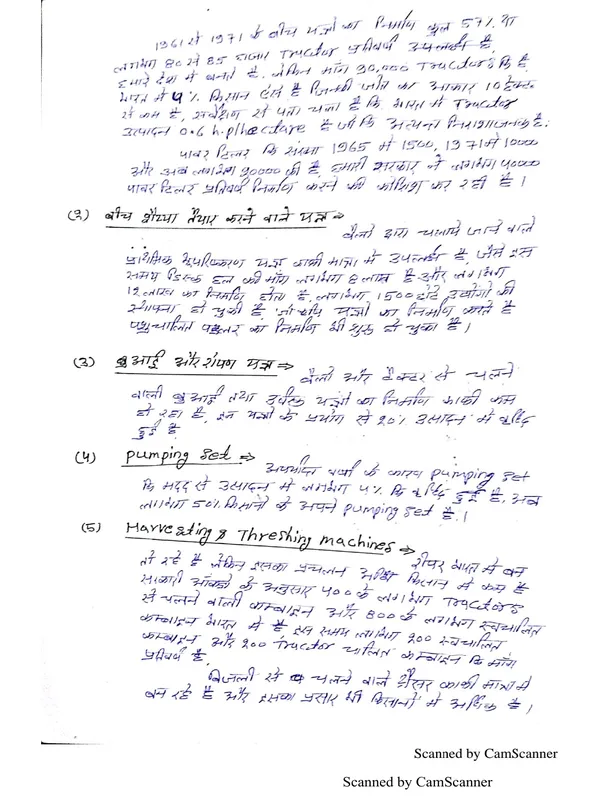 1961 से 1971 के बीच यन्त्रों का निर्माण कुल 57% था
लगभग 80 से 85 हजार Tractor प्रतिवर्ष उपलब्ध है,
हमारे देश में बनते है. लेकिन माँग 90,000 Tractors कि है,
भारत में 4% किसान ऐसे है जिनकी जोत का आकार 10 हेक्ट०
से कम है, सर्वेक्षण से पता चला है कि भारत में Tractor
उत्पादन 0.6 h.p/hectare है जो कि अत्यन्त निराशाजनक है:
पावर टिलर कि संख्या 1965 में 1500, 1971 में 10000
और अब लगभग 90000 की है, हमारी सरकार ने लगभग 40000
पावर टिलर प्रतिवर्ष निर्माण करने की कोशिश कर रही है।
(2) बीच शैय्या तैयार करने वाले यन्त्र ⇒
बैलो द्वारा चलाये जाने वाले
प्राथमिक भूपरिष्करण यन्त्र काफी मात्रा में उपलब्ध है, जैसे इस
समय डिस्क हल की माँग लगभग 8 लाख है और लगभग
12 लाख का निर्माण होता है. लगभग 1500 छोटे उद्योगो की
स्थापना हो चुकी है जो कृषि यन्त्रों का निर्माण करते है
पशुचालित का निर्माण भी शुरू हो चुका है।
(3) बुआई और रोपण यन्त्र ⇒
बैलो और ट्रैक्टर से चलने
वाली बुआई तथा उर्वरक यन्त्रों का निर्माण काफी कम
हो रहा है, इन यन्त्रों के प्रयोग से 20% उत्पादन में वृध्दि
हुई है
(4) Pumping Set ⇒
अपर्याप्त वर्षा के कारण pumping set
कि मदद से उत्पादन में लगभग 4% कि वृध्दि हुई है, अब
लगभग 50% किसानो के अपने pumping set है।
(5) Harvesting & Threshing machines ⇒
रीपर भारत में बन
तो रहे है लेकिन इसका प्रचलन अभी किसान में कम है
सरकारी आँकडो के अनुसार 400 के लगभग Tractors
से चलने वाली कम्बाइन और 800 के लगभग स्वचालित
कम्बाइन भारत में है इस समय लगभग 200 स्वचालित
कम्बाइन और 200 Tractor चालित कम्बाइन कि माँग
प्रतिवर्ष है.
बिजली से चलने वाले थ्रैसर काफी मात्रा में
बन रहे है और इसका प्रसार भी किसानो में अधिक है।
Scanned by CamScanner
Scanned by CamScanner